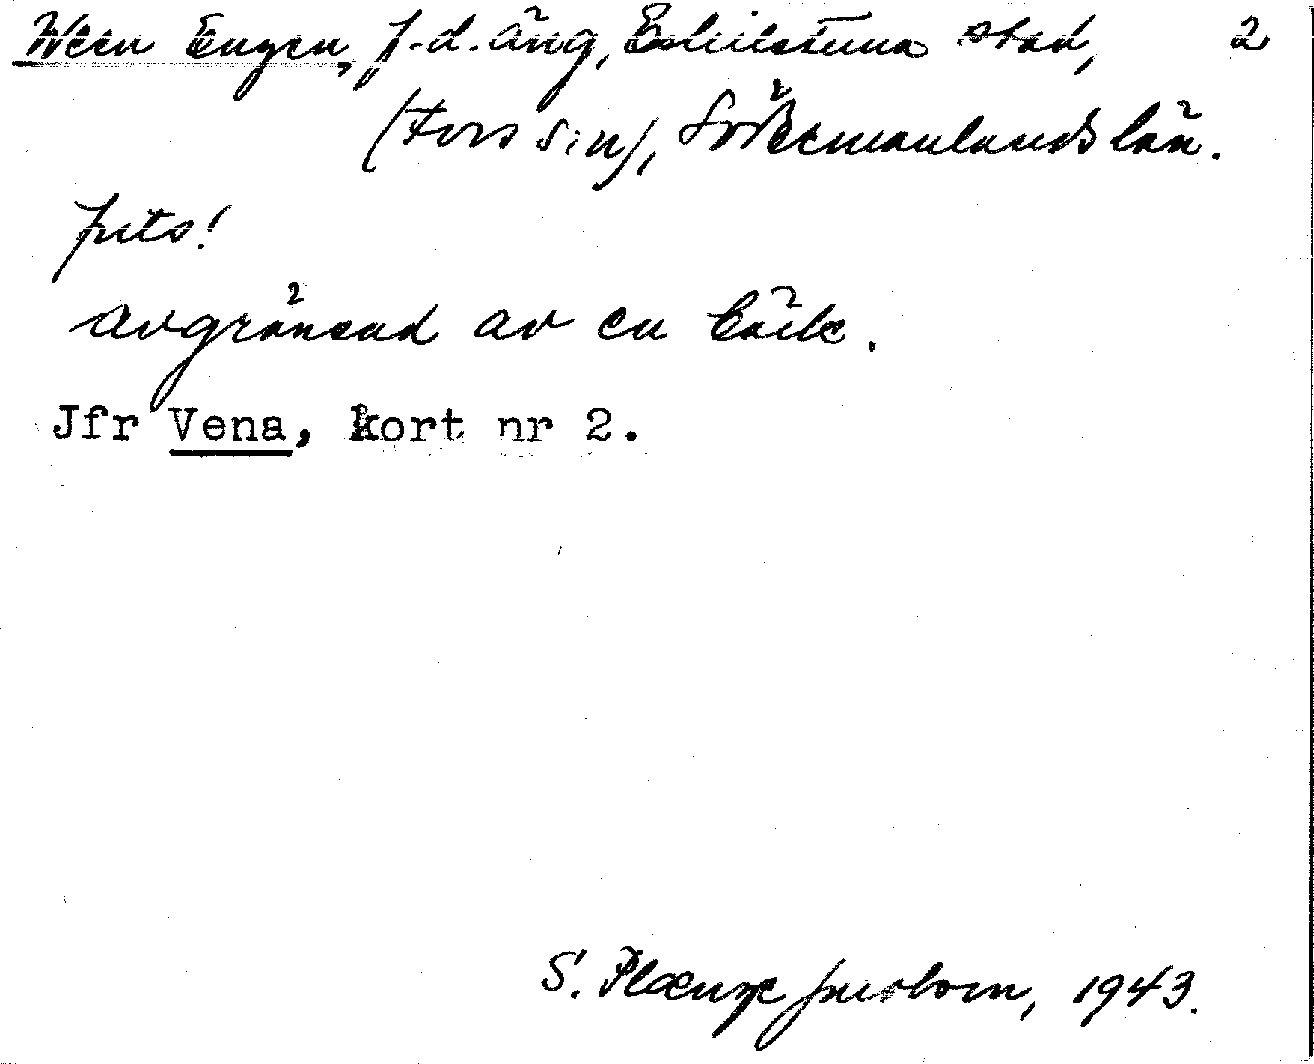 Ween Engen, f.d. äng, Eskilstuna stad, 2
(Fors sn), Södermanlands län.
avgränsad av en bäck.
Jfr Vena, kort nr 2.
S. 1943.